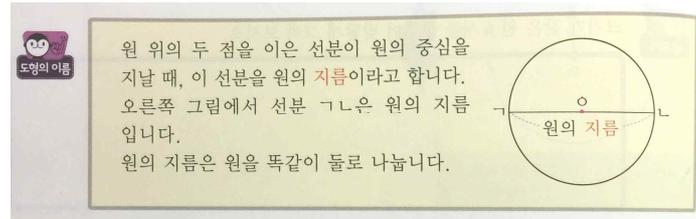 도형의 이름
원 위의 두 점을 이은 선분이 원의 중심을
지날 때, 이 선분을 원의 지름이라고 합니다.
오른쪽 그림에서 선분 ㄱㄴ은 원의 지름
입니다.
원의 지름은 원을 똑같이 둘로 나눕니다.
ㅇ
ㄱ ㄴ
원의 지름